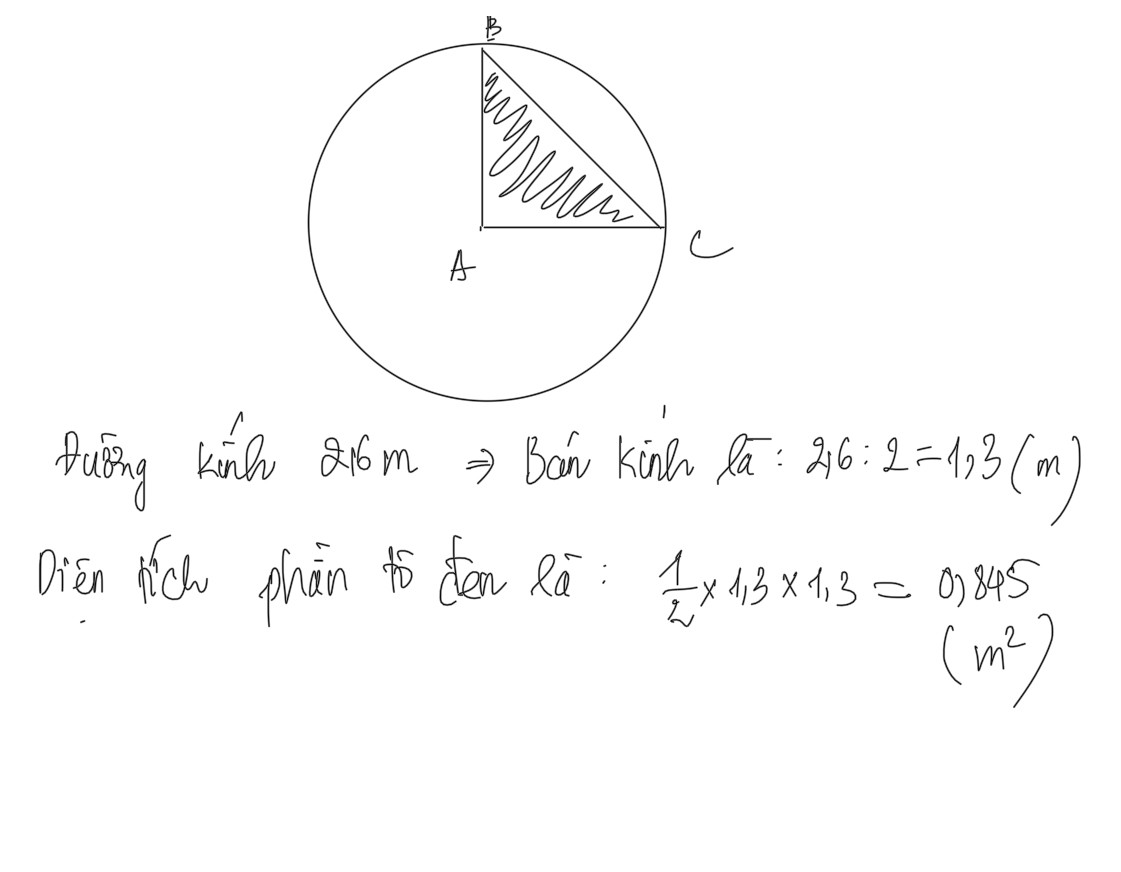 B
A
C
Đường kính 2,6m => Bán kính là: 2,6 : 2 = 1,3 (m)
Diện tích phần tô đen là: 1/2 x 1,3 x 1,3 = 0,845
(m²)